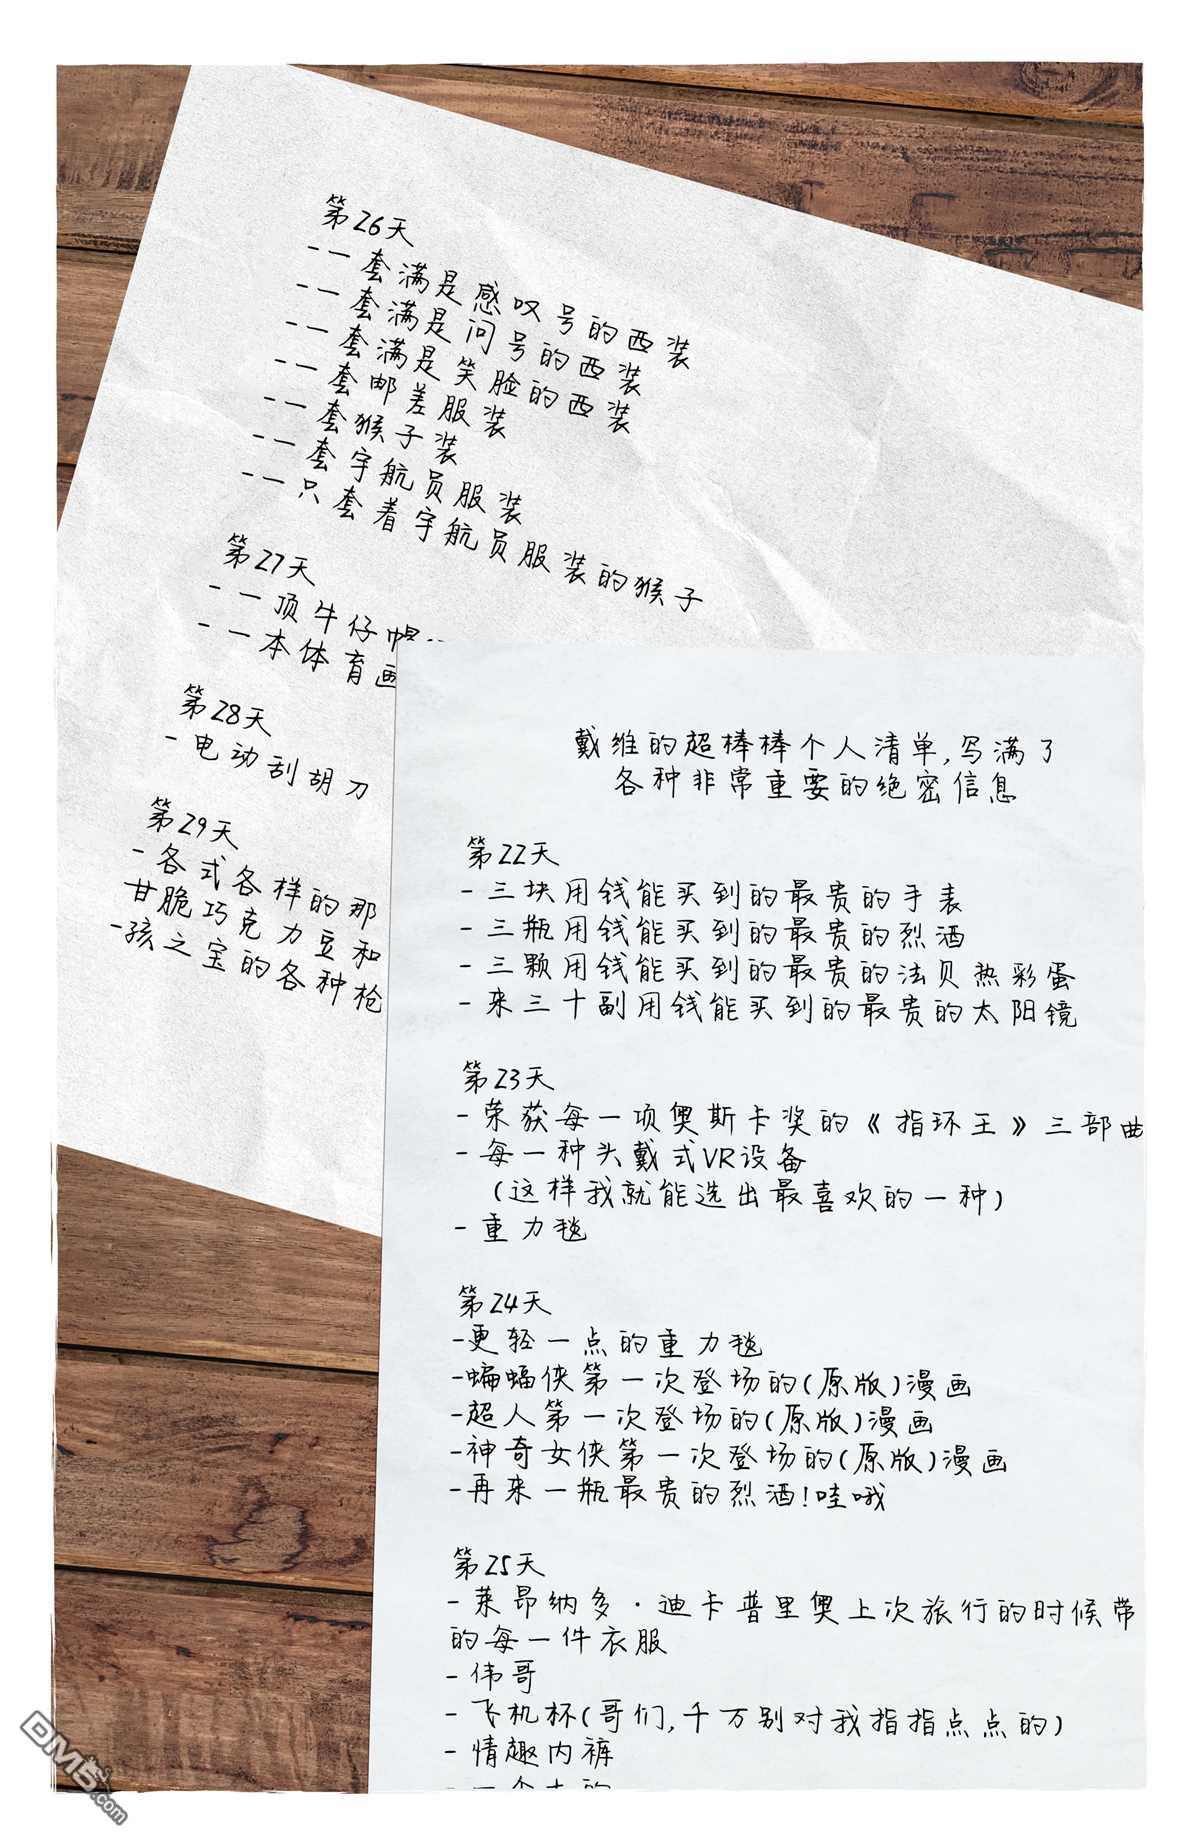 第26天
-一套满是感叹号的西装
-一套满是问号的西装
-一套满是笑脸的西装
-一套邮差服装
-一套猴子装
-一套宇航员服装
-一只套着宇航员服装的猴子
第27天
-一顶牛仔帽
-一本体育画
第28天
-电动刮胡刀
第29天
-各式各样的那
甘脆巧克力豆和
-孩之宝的各种枪
戴维的超棒棒个人清单,写满了
各种非常重要的绝密信息
第22天
-三块用钱能买到的最贵的手表
-三瓶用钱能买到的最贵的烈酒
-三颗用钱能买到的最贵的法贝热彩蛋
-来三十副用钱能买到的最贵的太阳镜
第23天
-荣获每一项奥斯卡奖的《指环王》三部曲
-每一种头戴式VR设备
(这样我就能选出最喜欢的一种)
-重力毯
第24天
-更轻一点的重力毯
-蝙蝠侠第一次登场的(原版)漫画
-超人第一次登场的(原版)漫画
-神奇女侠第一次登场的(原版)漫画
-再来一瓶最贵的烈酒!哇哦
第25天
-莱昂纳多·迪卡普里奥上次旅行的时候带
的每一件衣服
-伟哥
-飞机杯(哥们,千万别对我指指点点的)
-情趣内裤
DM5.com